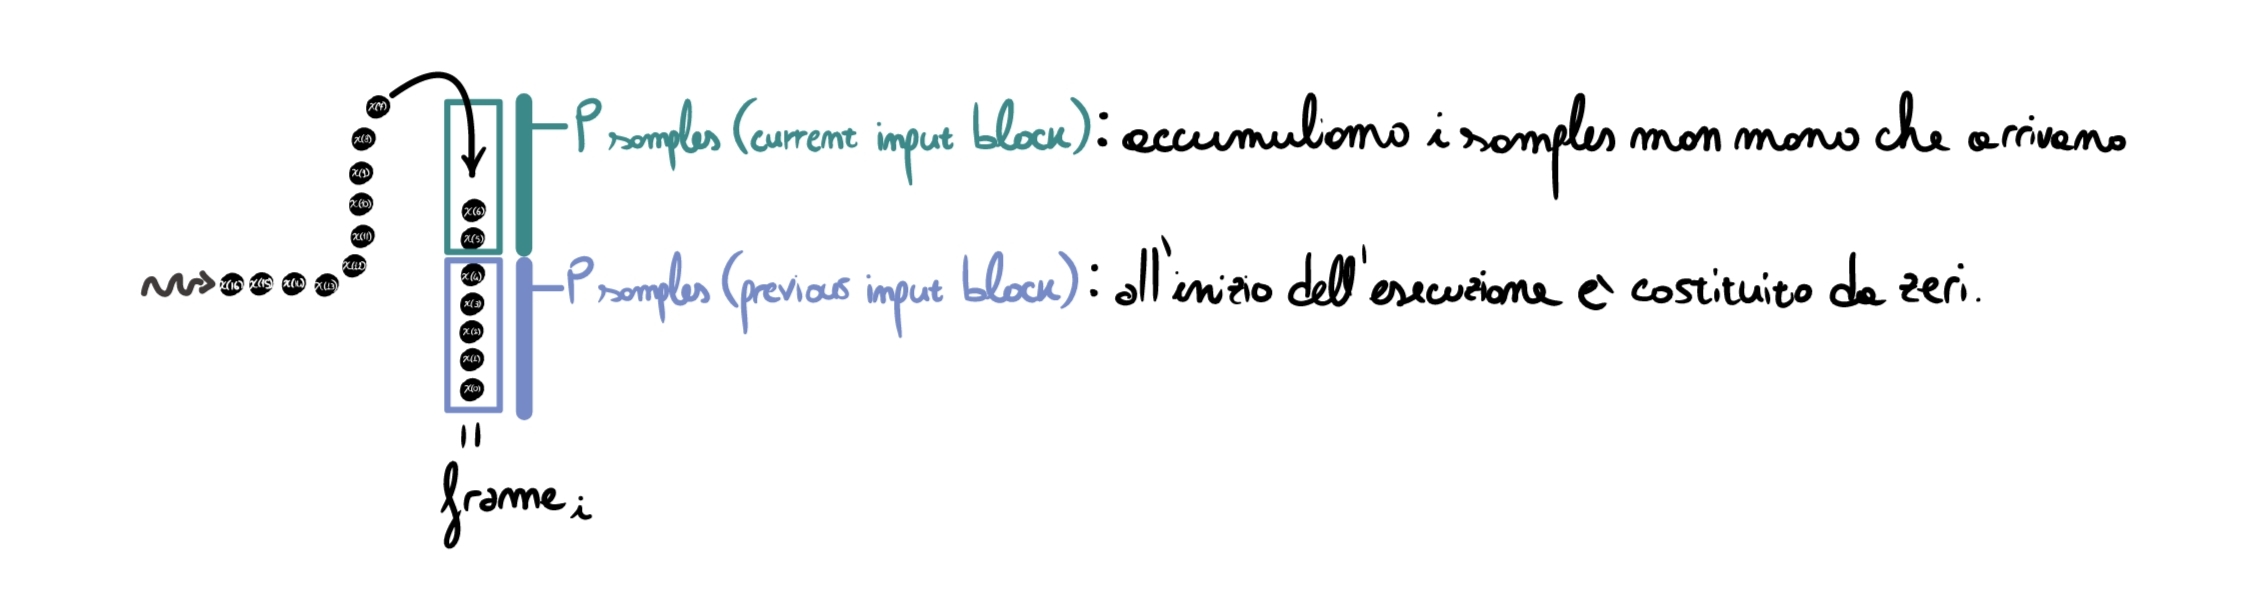 P samples (current input block): accumuliamo i samples man mano che arrivano
P samples (previous input block): all'inizio dell'esecuzione è costituito da zeri.
x(7)
x(8)
x(9)
x(10)
x(11)
x(12)
x(16) x(15) x(14) x(13)
x(6)
x(5)
x(4)
x(3)
x(2)
x(1)
x(0)
=
frame i